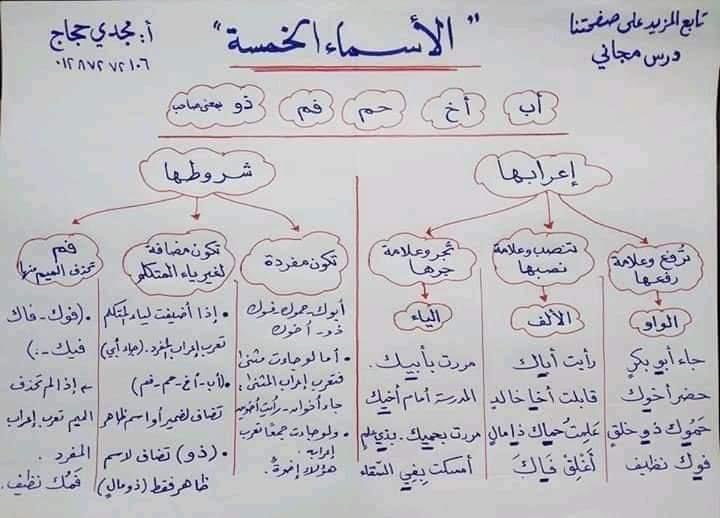 تابع المزيد على صفحتنا
درس مجاني
"الأسماء الخمسة"
أ: مجدي حجاج
٠١٢٨٧٢٧٢١٠٦
أب أخ حم فم ذو بمعنى صاحب
إعرابها
شروطها
تُرفع وعلامة
رفعها
الواو
جاء أبو بكرٍ
حضر أخوك
حَمُوك ذو خلقٍ
فوك نظيف
تنصب وعلامة
نصبها
الألف
رأيت أباك
قابلت أخا خالد
عَلِمتُ حُماك ذا مالٍ
أَغْلِقْ فَاكَ
تُجر وعلامة
جرها
الياء
مررت بأبيك.
المدرسة أمام أخيك
مررت بحميك. بذي علمٍ
أمسكت بِفِي السقاء
تكون مفردة
أبوك - حموك - فوك
ذو - أخوك
• أما لو جاءت مثنى
فتعرب إعراب المثنى
جاء أخواك - رأيت أخويك
• ولو جاءت جمعًا تعرب
إعرابه
هؤلاء إخوةٌ
تكون مضافة
لغير ياء المتكلم
• إذا أضيفت لياء المتكلم
تعرب إعراب المفرد. (جاء أبي)
• (أب - أخ - حم - فم)
تضاف لضمير أو اسم ظاهر
• (ذو) تضاف لاسم
ظاهر فقط (ذو مالٍ)
فم
تحذف الميم منها
• (فوك - فاك
فيك - )
إذا لم تحذف
الميم تعرب إعراب
المفرد.
فَمُك نظيف.